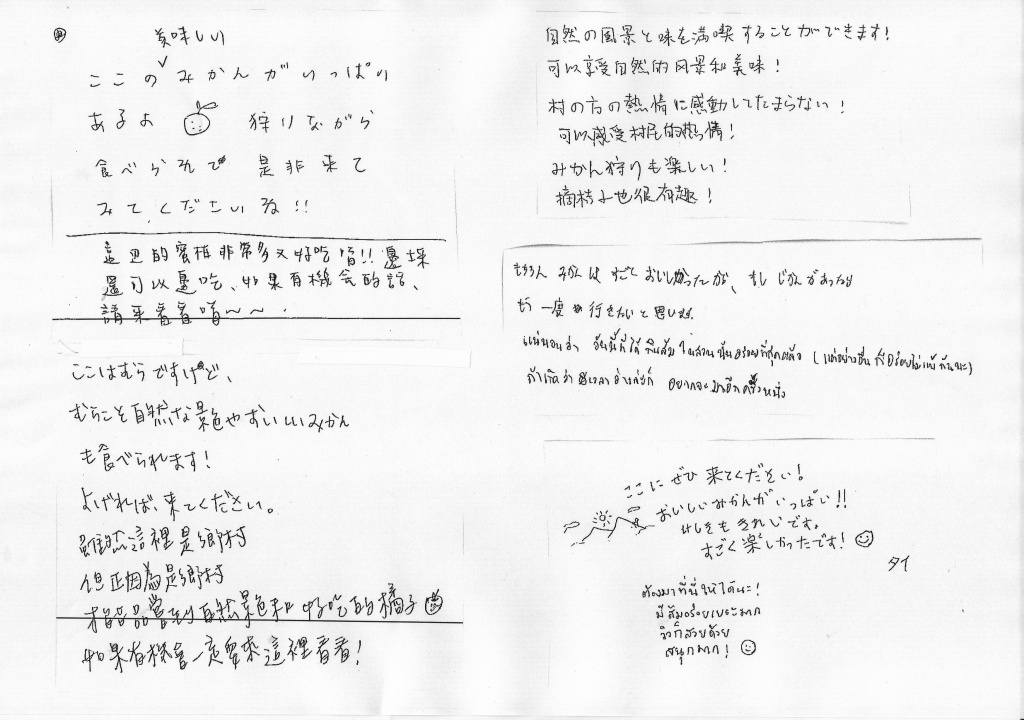 美味しい
ここのみかんがいっぱい
あるよ 狩りながら
食べられて 是非来て
みてくださいね!!
這边的蜜柑非常多又好吃唷!!邊採
還可以邊吃、如果有機会的話、
請來看看唷~~.
ここはむらですけど、
むらこと自然な景色やおいしいみかん
も食べられます!
よければ、来てください。
雖然這裡是鄉村
但正因為是鄉村
才能品嘗到自然景色和好吃的橘子
如果有機會一定要來這裡看看!
自然の風景と味を満喫することができます!
可以享受自然的风景和美味!
村の方の熱情に感動してたまらない!
可以感受村民的热情!
みかん狩りも楽しい!
摘桔子也很有趣!
もちろん みかんは すごく おいしかったが、もし じかんがあったら
もう一度 行きたいと思います。
แน่นอนว่า วันนี้ที่ได้กินส้มในสวนนั้นอร่อยที่สุดแล้ว (แต่อย่างอื่นก็อร่อยไม่แพ้กันนะ)
ถ้าเกิดว่ามีเวลาว่าง ก็อยากจะมาอีกครั้งหนึ่ง
ここに ぜひ 来てください!
おいしいみかんがいっぱい!!
けしきもきれいです。
すごく楽しかったです!
タイ
ต้องมาที่นี่ให้ได้นะ!
มีส้มอร่อยเยอะมาก
วิวก็สวยด้วย
สนุกมาก!